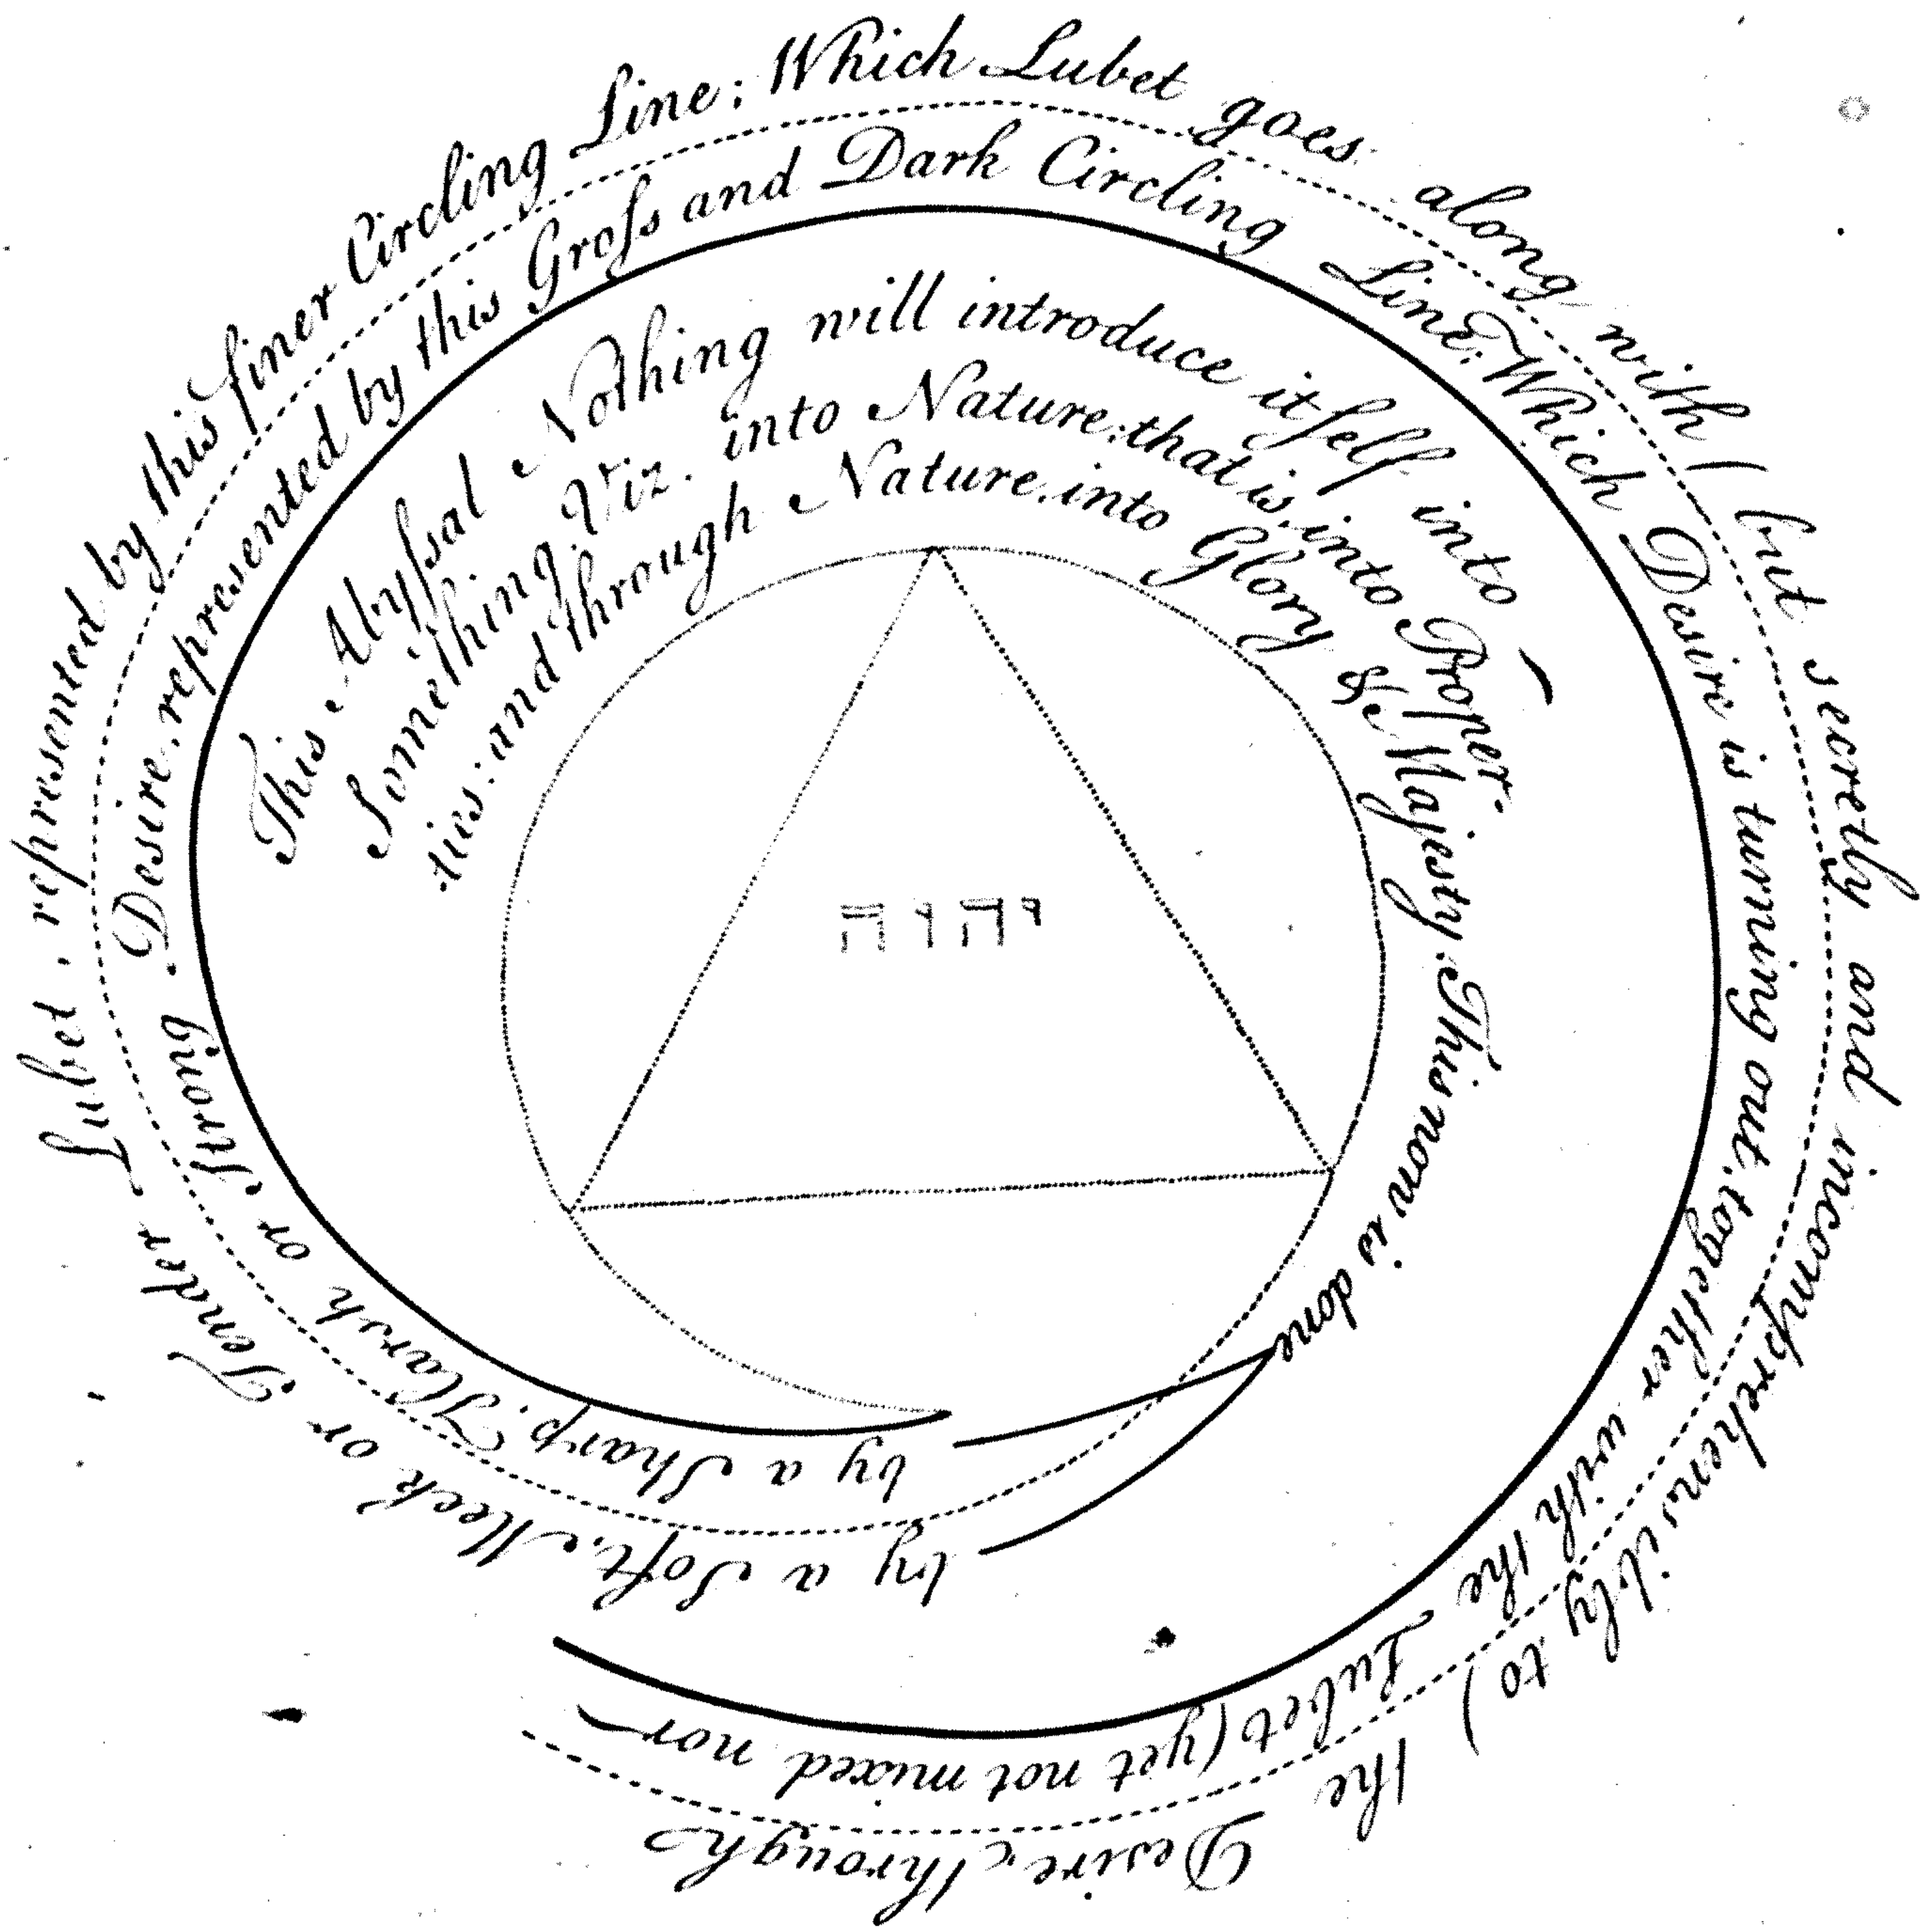 This Abyſsal Nothing will introduce itſelf into
Something. Viz. into Nature: that is, into Proper-
-ties: and through Nature, into Glory &c Majesty. This now is done
by a Sharp, Harsh or Strong Desire, represented by this Groſs and Dark Circling Line; Which Desire is turning out, together with the Lubet (yet not mixed nor
by a Soft, Meek or Tender Lubet, represented by this finer Circling Line; Which Lubet goes along with (but secretly and incomprehensibly to) the Desire, through
יהוה